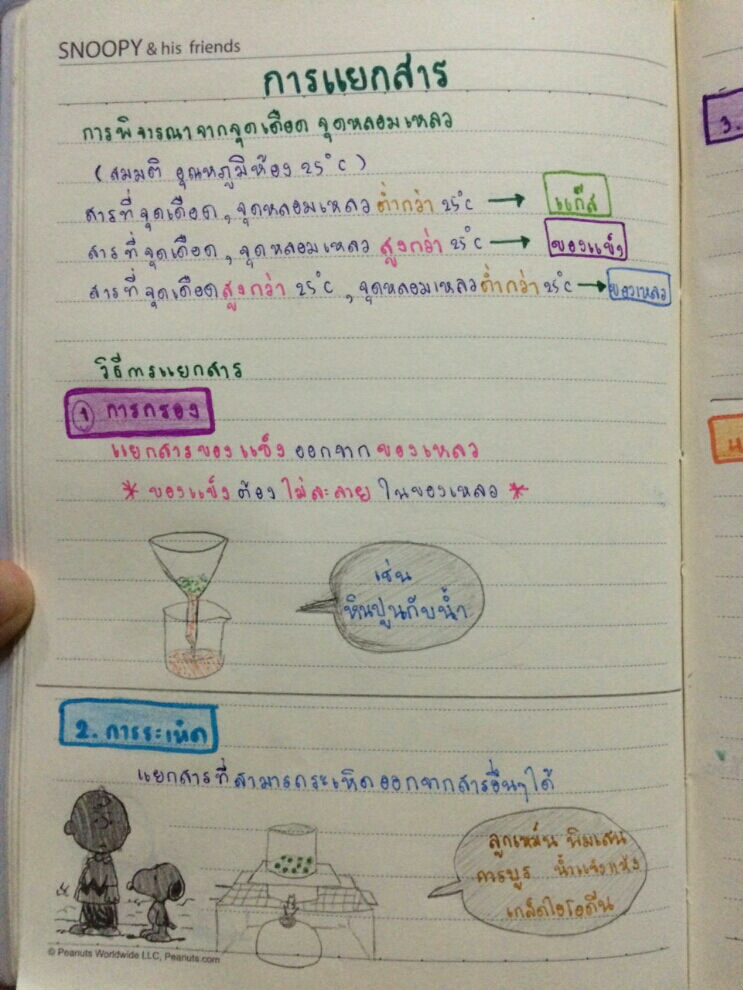 SNOOPY & his friends
การแยกสาร
การพิจารณาจากจุดเดือด จุดหลอมเหลว
(สมมติ อุณหภูมิห้อง 25°C)
สารที่จุดเดือด, จุดหลอมเหลวต่ำกว่า 25°C → แก๊ส
สารที่จุดเดือด, จุดหลอมเหลว สูงกว่า 25°C → ของแข็ง
สารที่จุดเดือดสูงกว่า 25°C, จุดหลอมเหลวต่ำกว่า 25°C → ของเหลว
วิธีการแยกสาร
① การกรอง
แยกสารของแข็ง ออกจากของเหลว
* ของแข็งต้องไม่ละลาย ในของเหลว *
เช่น
หินปูนกับน้ำ
2. การระเหิด
แยกสารที่สามารถระเหิดออกจากสารอื่นๆได้
ลูกเหม็น พิมเสน
การบูร น้ำแข็งแห้ง
เกล็ดไอโอดีน
© Peanuts Worldwide LLC, Peanuts.com
3.
4